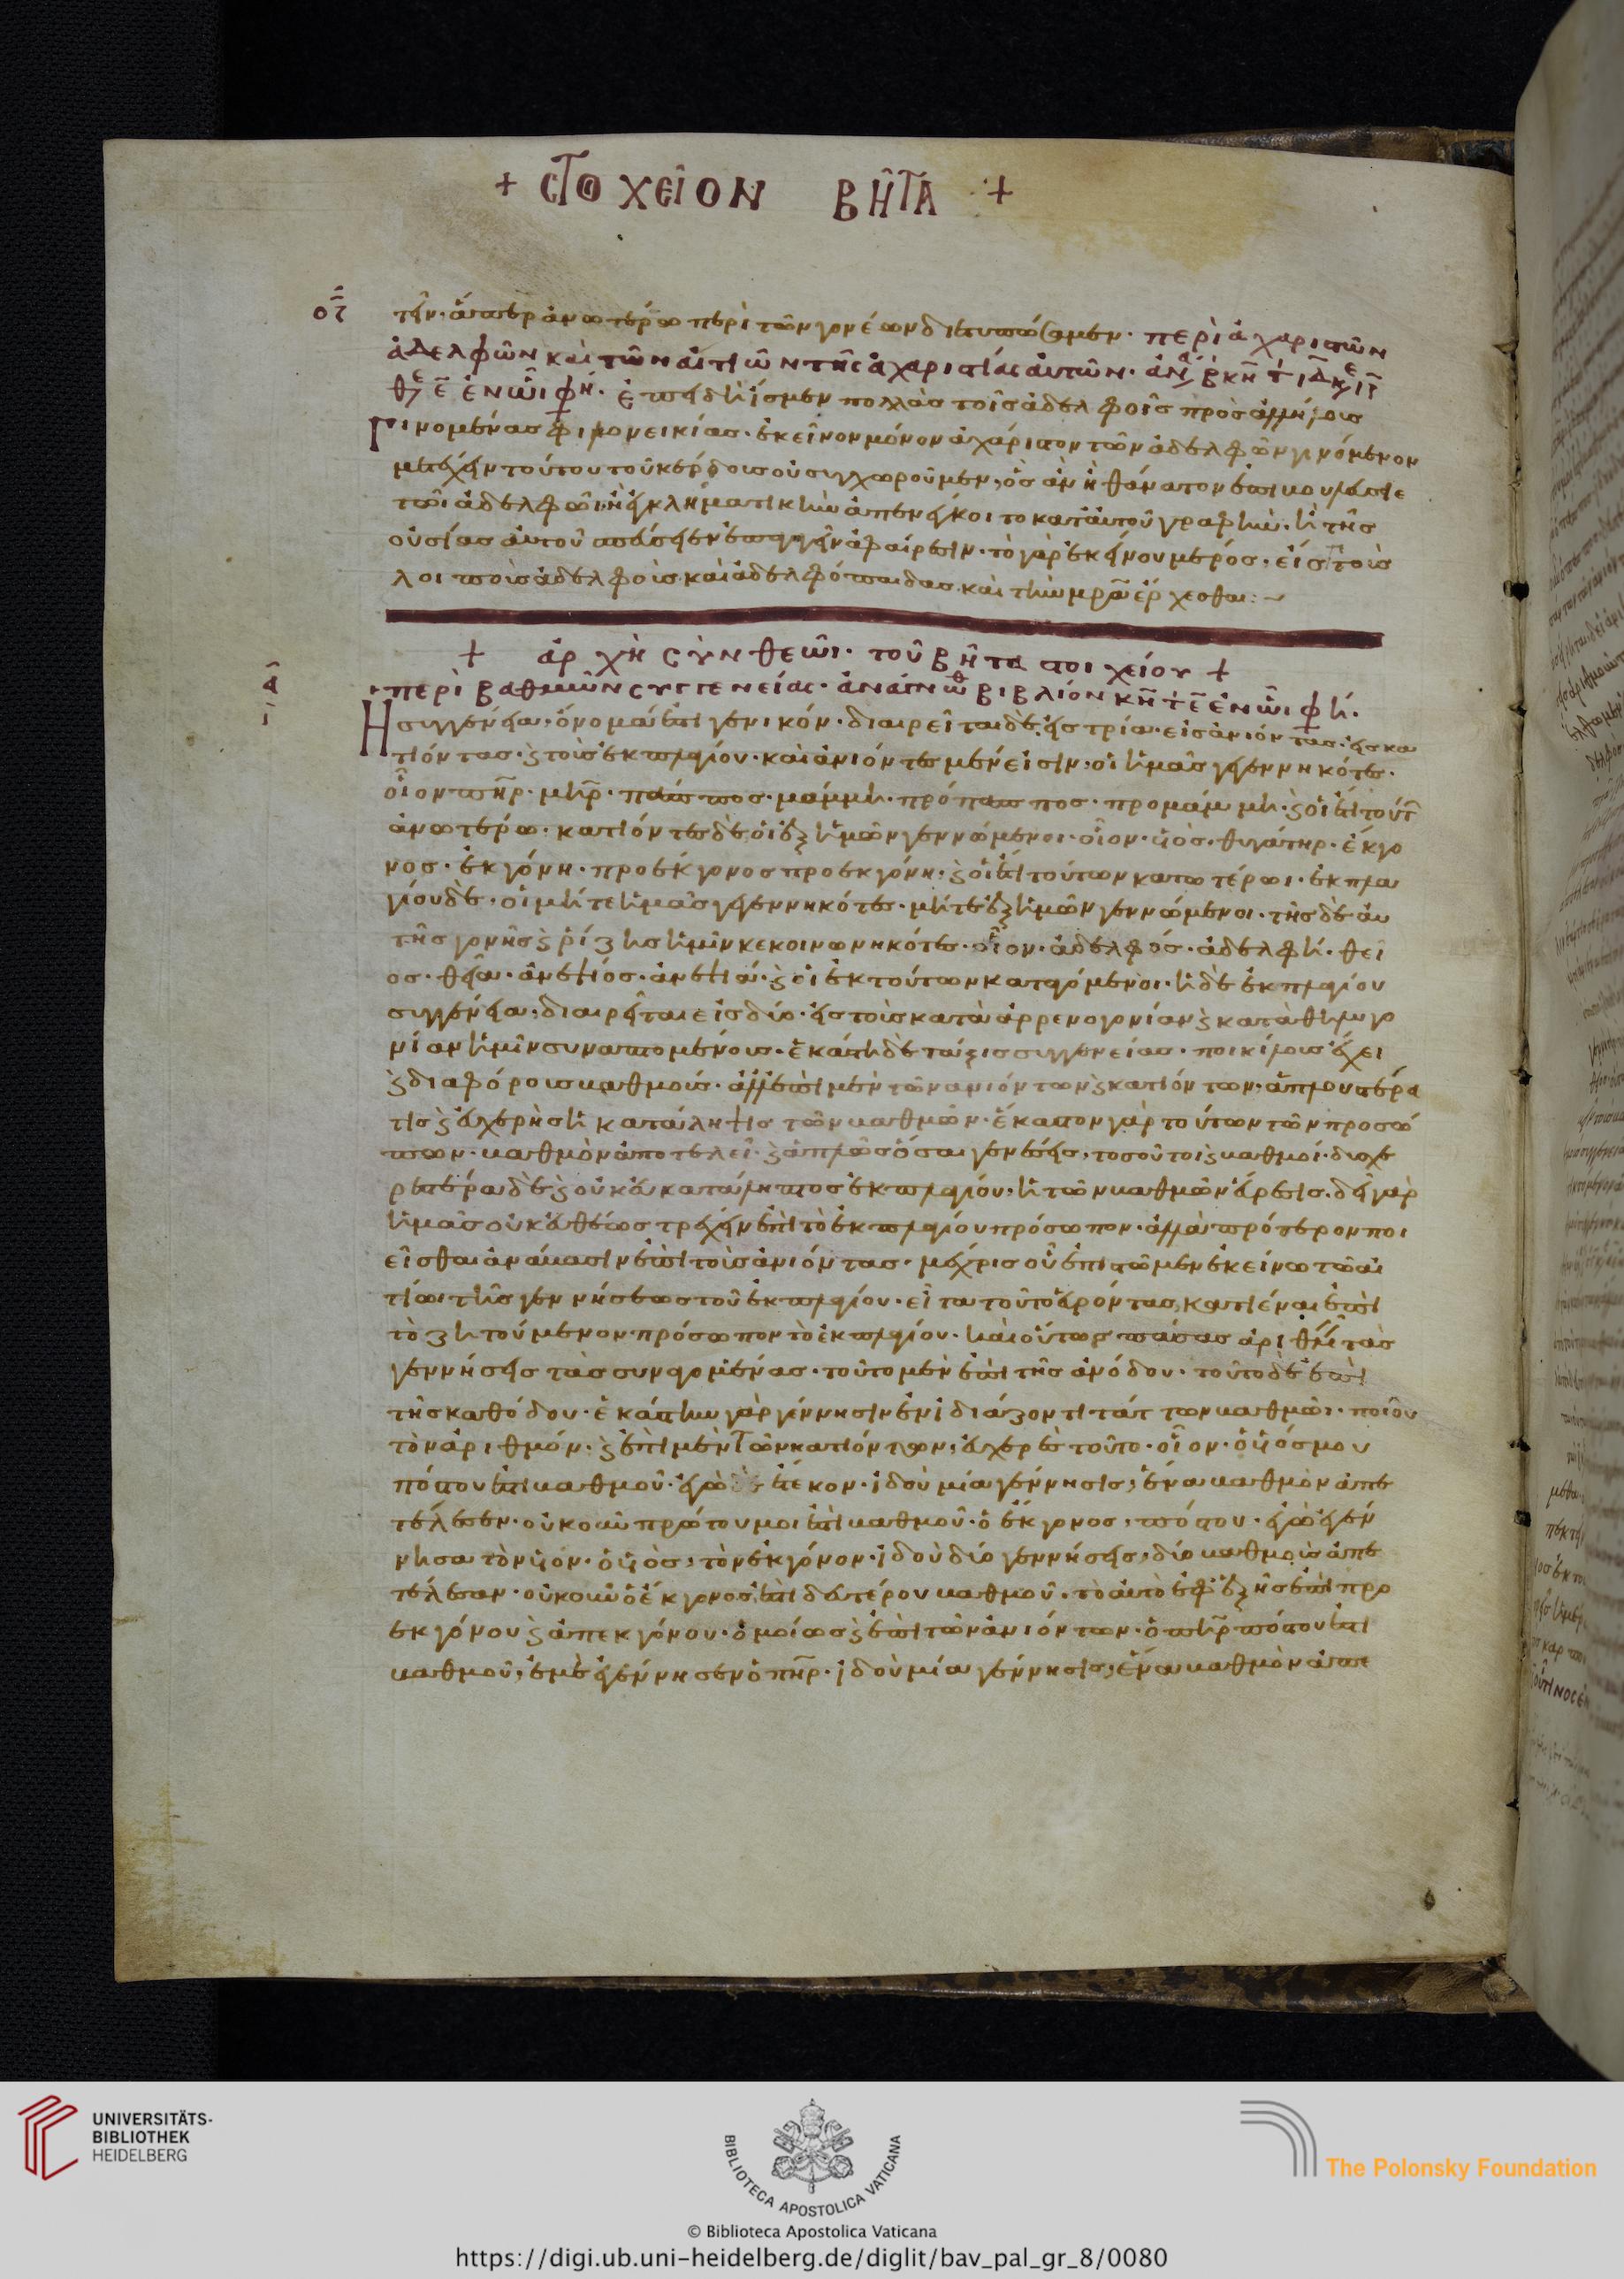 + στοχεῖον βῆτα +
οϛ
τὴν. ἅπερ ἀνωτέρω περὶ τῶν γονέων διετυπώσαμεν. περὶ ἀχαρίστων
ἀδελφῶν καὶ τῶν αἰτιῶν τῆς ἀχαριστίας αὐτῶν.
ἐν ὧι φη. ἐπειδὴ ἴσμεν πολλὰς τοῖς ἀδελφοῖς πρὸς ἀλλήλους
γινομένας φιλονεικίας. ἐκεῖνον μόνον ἀχάριστον τῶν ἀδελφῶν γινόμενον
μετέχειν τούτου τοῦ κέρδους οὐ συγχωροῦμεν, ὃς ἂν ἢ θάνατον ἐπιβουλεύσῃ
τῶι ἀδελφῶι, ἢ ἐγκληματικὴν ἀπενέγκοι τὸ κατ' αὐτοῦ γραφὴν. ἢ τῆς
οὐσίας αὐτοῦ σπεύσειεν ἐπαγαγεῖν ἀφαίρεσιν. τὸ γὰρ ἐκείνου μέρος, εἰς τοὺς
λοιποὺς ἀδελφοὺς καὶ ἀδελφόπαιδας καὶ τὴν μρα ἔρχεσθαι: ~
+ ἀρχὴ σὺν θεῶι. τοῦ βῆτα στοιχείου +
α
περὶ βαθμῶν συγγενείας. ἀνάγνω βιβλίον κη τ ε ἐν ὧι φη.
Ἡ συγγένεια, ὄνομά ἐστι γενικόν. διαιρεῖται δὲ εἰς τρία. εἰς ἀνιόντας. εἰς κα
τιόντας. ϗ τοὺς ἐκ πλαγίου. καὶ ἀνιόντες μέν εἰσιν, οἱ ἡμᾶς γεγεννηκότες.
οἷον πηρ. μηρ. πάππος. μάμμη. πρόπαππος. προμάμμη. ϗ οἱ ἔτι τούτ
ἀνωτέρω. κατιόντες δὲ οἱ ἐξ ἡμῶν γεννώμενοι. οἷον. υἱός. θυγάτηρ. ἔκγο
νος. ἐκγόνη. προέκγονος προεκγόνη. ϗ οἱ ἔτι τούτων κατωτέρωι. ἐκ πλα
γίου δὲ, οἱ μήτε ἡμᾶς γεγεννηκότες. μήτε ἐξ ἡμῶν γεννώμενοι. τῆς δὲ αὐ
τῆς γονῆς ϗ ῥίζης ἡμῖν κεκοινωνηκότες. οἷον. ἀδελφός. ἀδελφή. θεῖ
ος. θεία. ἀνεψιός. ἀνεψιά. ϗ οἱ ἐκ τούτων καταγόμενοι. ἡ δὲ ἐκ πλαγίου
συγγένεια, διαιρεῖται εἰς δύο. εἰς τοὺς κατὰ ἀρρενογονίαν ϗ κατὰ θηλυγο
νίαν ἡμῖν συναπτομένους. ἑκάστη δὲ τάξις συγγενείας. ποικίλους ἔχει
ϗ διαφόρους βαθμούς. ἀλλ' ἐπὶ μὲν τῶν ανιόντων ϗ κατιόντων. ἁπλουστέρα
τίς ϗ εὐχερής ἡ κατάληψις τῶν βαθμῶν. ἕκαστον γὰρ τούτων τῶν προσώ
πων. βαθμὸν ἀποτελεῖ. ϗ ἁπλῶς ὅσαι γενέσεις, τοσοῦτοι ϗ βαθμοί. δυσχε
ρεστέρα δὲ ϗ οὐκ εὐκατάληπτος ἐκ πλαγίου, ἡ τῶν βαθμῶν εὕρεσις. δεῖ γὰρ
ἡμᾶς οὐκ εὐθέως τρέχειν ἐπὶ τὸ ἐκ πλαγίου πρόσωπον. ἀλλὰ πρότερον ποι
εῖσθαι ἀνάβασιν ἐπὶ τοὺς ἀνιόντας. μέχρις οὗ ἐπιστῶμεν ἐκείνω τῶ αἰ
τίωι τῆς γεννήσεως τοῦ ἐκ πλαγίου. εἶτα τοῦτο εὑρόντας, κατιέναι ἐπὶ
τὸ ζητούμενον πρόσωπον τὸ ἐκ πλαγίου. καὶ οὕτως πάσας ἀριθμεῖν τὰς
γεννήσεις τὰς συναγομένας. τοῦτο μὲν ἐπὶ τῆς ἀνόδου. τοῦτο δὲ ἐπὶ
τῆς καθόδου. ἑκάστην γὰρ γέννησιν ἐνὶ διάζοντι τάττων βαθμῶι. ποιοῦ
τὸν ἀριθμόν. ϗ ἐπὶ μὲν τῶν κατιόντων, εὐχερὲς τοῦτο. οἷον. ὁ υἱός μου
πόστου ἐστὶ βαθμοῦ. ἐγὼ ἔτεκον. ἰδοὺ μία γέννησις, ἕνα βαθμὸν ἀπε
τέλεσεν. οὐκοῦν πρώτου μοι ἐστὶ βαθμοῦ. ὁ ἔκγονος, πόστου. ἐγὼ ἐγέν
νησα τὸν υἱόν. ὁ υἱὸς, τὸν ἔκγονον. ἰδοὺ δύο γεννήσεις, δύο βαθμοὺς ἀπε
τέλεσαν. οὐκοῦν ὁ ἔκγονος, ἐστὶ δευτέρου βαθμοῦ. τὸ αὐτὸ ἐφεξῆς ἐπὶ προ
εκγόνου ϗ ἀπεκγόνου. ὁμοίως ϗ ἐπὶ τῶν ἀνιόντων. ὁ πηρ πόστου ἐστὶ
βαθμοῦ, ἐμὲ ἐγέννησεν ὁ πηρ. ἰδοὺ μία γέννησις, ἕνα βαθμὸν ἀπε
UNIVERSITÄTS-
BIBLIOTHEK
HEIDELBERG
BIBLIOTECA APOSTOLICA VATICANA
The Polonsky Foundation
© Biblioteca Apostolica Vaticana
https://digi.ub.uni-heidelberg.de/diglit/bav_pal_gr_8/0080